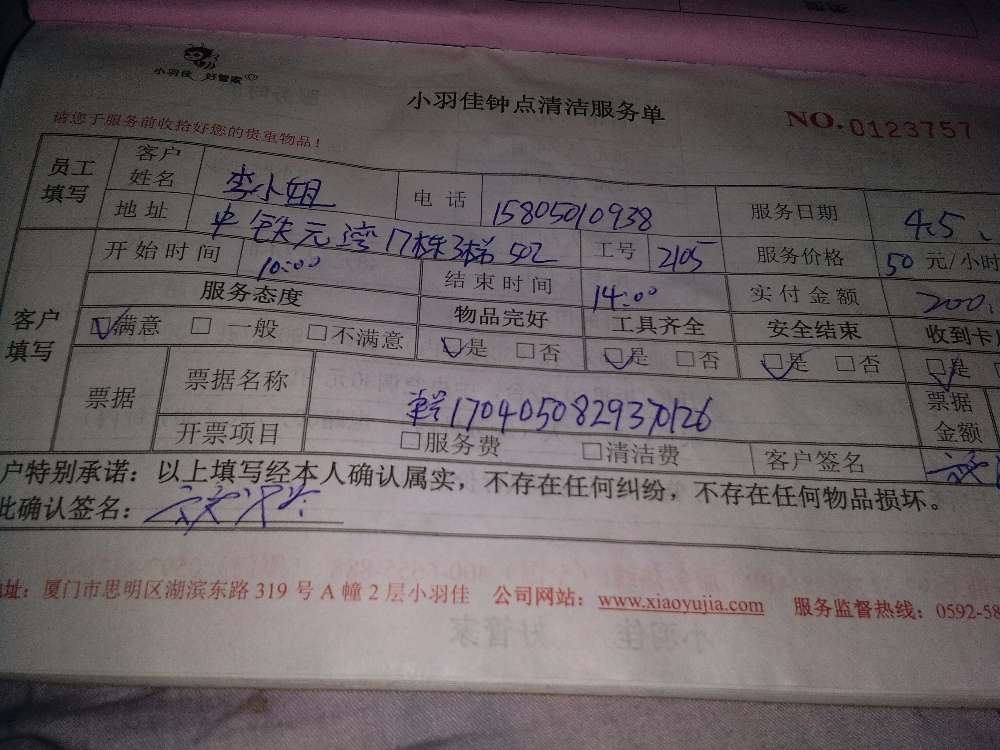 小羽佳 好管家
小羽佳钟点清洁服务单
NO.0123757
请您于服务前收拾好您的贵重物品！
员工填写 客户姓名 李小姐 电话 15805010938 服务日期 4.5、
地址 中铁元湾17栋3梯502 工号 2105 服务价格 50元/小时
客户填写 开始时间 10:00 结束时间 14:00 实付金额 200.
服务态度 物品完好 工具齐全 安全结束 收到卡
☑满意 □一般 □不满意 ☑是 □否 ☑是 □否 ☑是 □否 ☑是
票据 票据名称 单号1704050829370126 票据金额
开票项目 □服务费 □清洁费 客户签名
户特别承诺：以上填写经本人确认属实，不存在任何纠纷，不存在任何物品损坏。
此确认签名：
址：厦门市思明区湖滨东路319号A幢2层小羽佳 公司网站：www.xiaoyujia.com 服务监督热线：0592-58